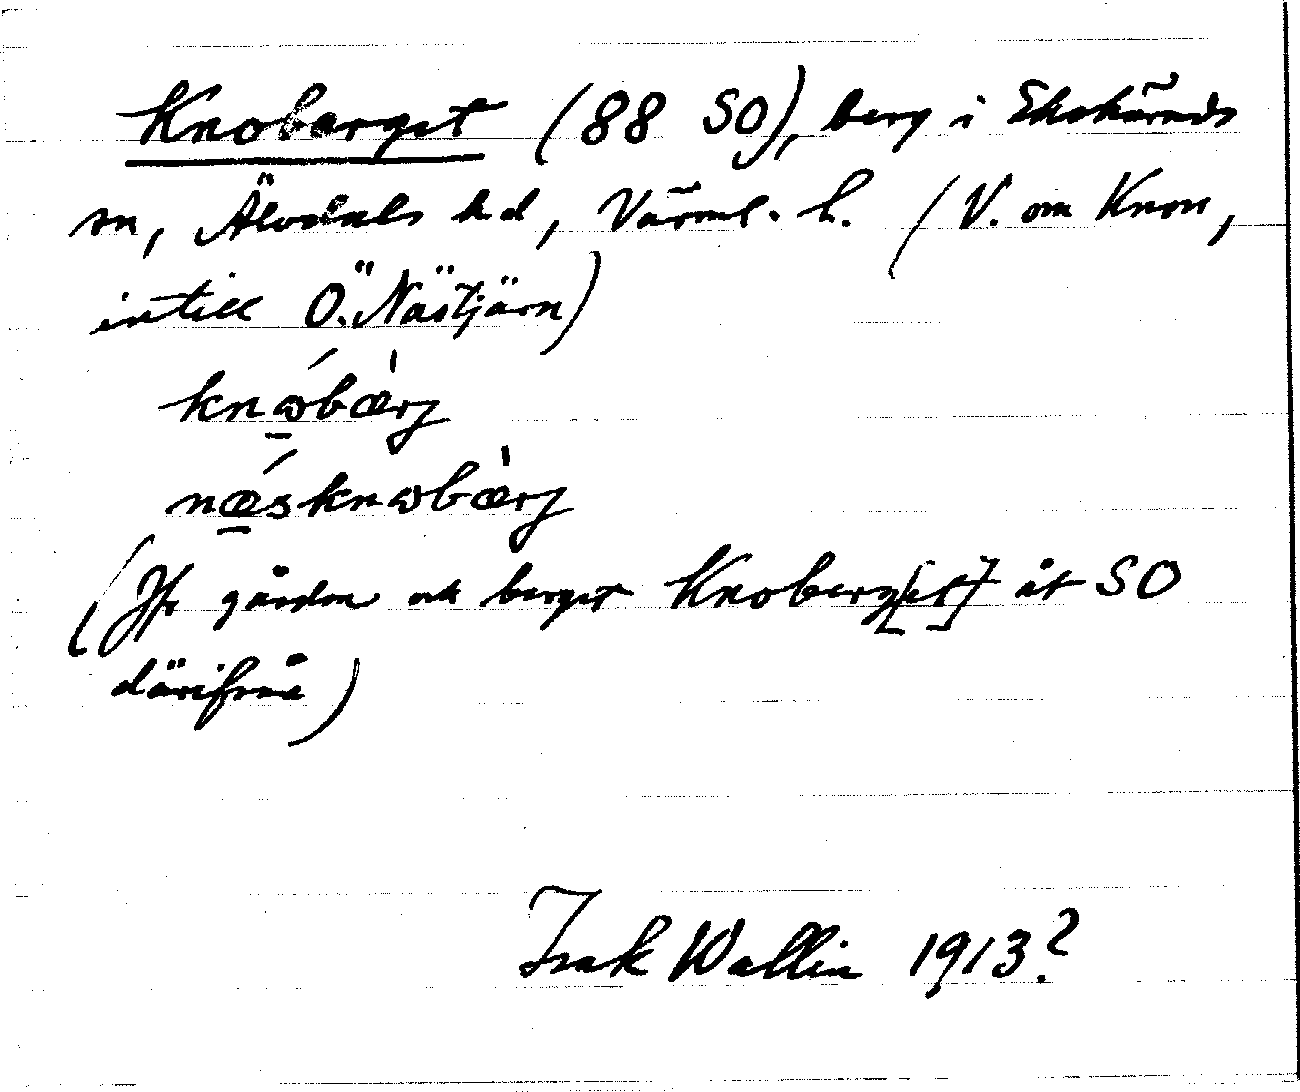 Knoberget (88 SO), berg i Ekshärads
sn, Älvdals hd, Värml. l. (V. om Knon,
intill Ö. Nästjärn)
knɷ́bæ̀rj
nǽsknɷbæ̀rj
(Jfr gården och berget Knoberg[et] åt SO
därifrån)
Isak Wallin 1913?